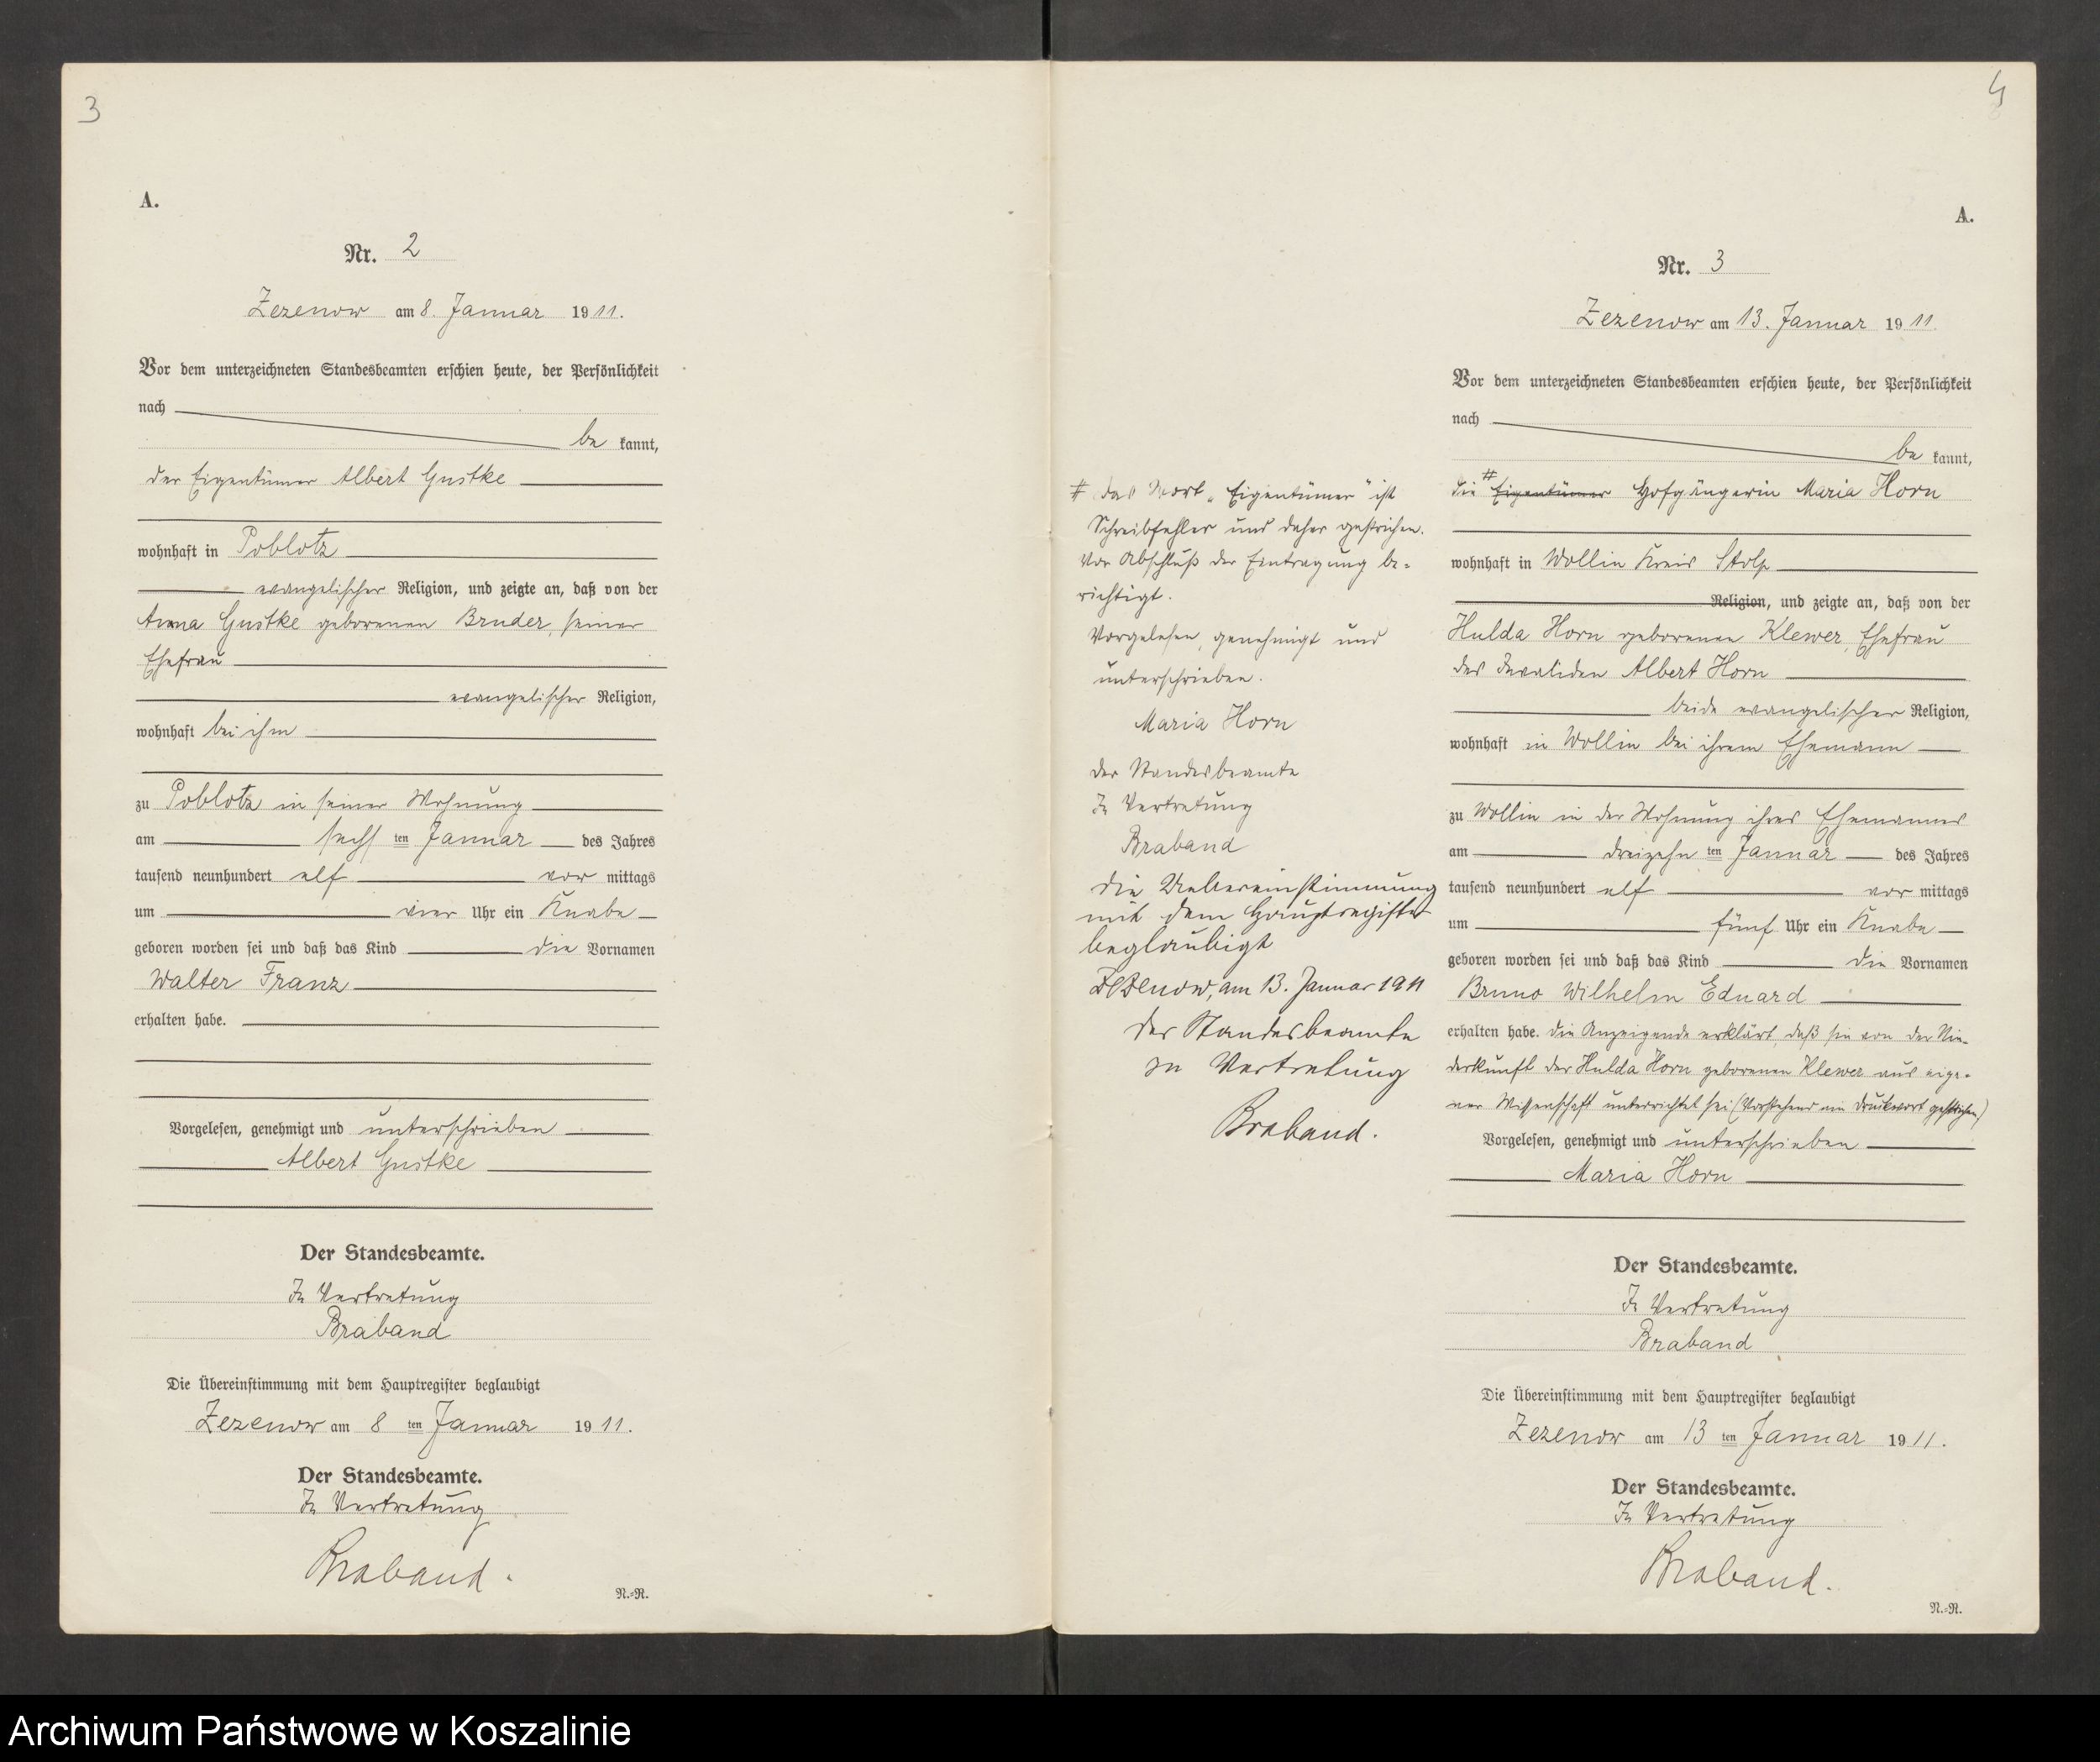 3
A.
Nr. 2
Zezenow am 8. Januar 1911.
Vor dem unterzeichneten Standesbeamten erschien heute, der Persönlichkeit
nach
be kannt,
der Eigentümer Albert Gustke
wohnhaft in Poblotz
evangelischer Religion, und zeigte an, daß von der
Anna Gustke geborenen Bruder, seiner
Ehefrau
evangelischer Religion,
wohnhaft bei ihm
zu Poblotz in seiner Wohnung
am sechs ten Januar des Jahres
tausend neunhundert elf vor mittags
um vier Uhr ein Knabe
geboren worden sei und daß das Kind die Vornamen
Walter Franz
erhalten habe.
Vorgelesen, genehmigt und unterschrieben
Albert Gustke
Der Standesbeamte.
In Vertretung
Braband
Die Übereinstimmung mit dem Hauptregister beglaubigt
Zezenow am 8 ten Januar 1911.
Der Standesbeamte.
In Vertretung
Braband.
N.-R.
4
A.
Nr. 3
Zezenow am 13. Januar 1911.
Vor dem unterzeichneten Standesbeamten erschien heute, der Persönlichkeit
nach
be kannt,
die # Eigentümer Hofgängerin Maria Horn
wohnhaft in Wollin Kreis Stolp
Religion, und zeigte an, daß von der
Hulda Horn geborenen Klewer, Ehefrau
des Invaliden Albert Horn
beide evangelischer Religion,
wohnhaft in Wollin bei ihrem Ehemann
zu Wollin in der Wohnung ihres Ehemannes
am dreizehn ten Januar des Jahres
tausend neunhundert elf vor mittags
um fünf Uhr ein Knabe
geboren worden sei und daß das Kind die Vornamen
Bruno Wilhelm Eduard
erhalten habe. Die Anzeigende erklärt, daß sie von der Nie-
derkunft der Hulda Horn geborenen Klewer aus eige-
ner Wissenschaft unterrichtet sei (Vorstehend ein Druckwort gestrichen)
Vorgelesen, genehmigt und unterschrieben
Maria Horn
Der Standesbeamte.
In Vertretung
Braband
Die Übereinstimmung mit dem Hauptregister beglaubigt
Zezenow am 13 ten Januar 1911.
Der Standesbeamte.
In Vertretung
Braband.
N.-R.
# Das Wort „Eigentümer" ist
Schreibfehler und daher gestrichen.
Vor Abschluß der Eintragung be-
richtigt.
Vorgelesen, genehmigt und
unterschrieben.
Maria Horn
Der Standesbeamte
In Vertretung
Braband
Die Uebereinstimmung
mit dem Hauptregister
beglaubigt
Zezenow, am 13. Januar 1911
Der Standesbeamte
In Vertretung
Braband.
Archiwum Państwowe w Koszalinie